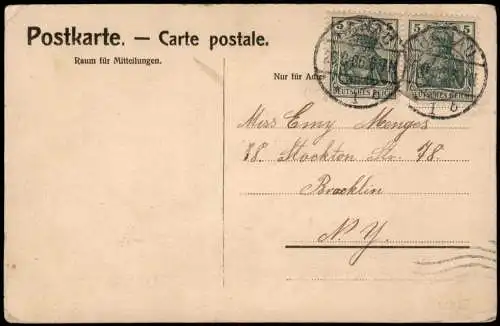 Postkarte. — Carte postale.
Raum für Mitteilungen.
Nur für Adre
5 5
5 5
DEUTSCHES REICH
DEUTSCHES REICH
1 b
1 b
Miss Emy Menges
28. Stockton Str. 78.
Brocklin
N. Y.